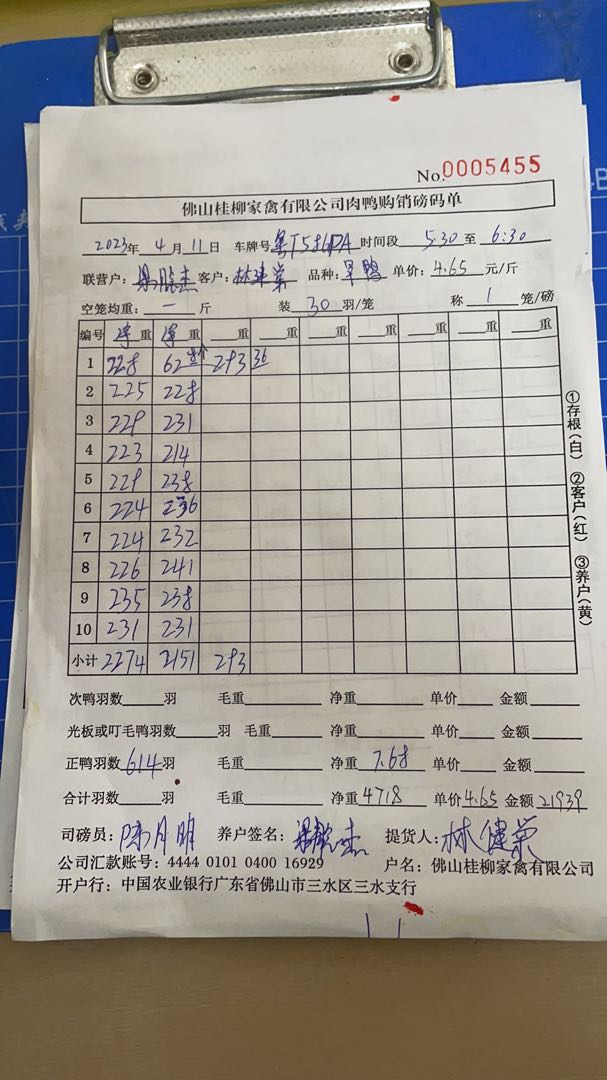 No.0005455
佛山桂柳家禽有限公司肉鸭购销磅码单
2023年 4月 11日 车牌号 粤T586PA 时间段 5:30 至 6:30
联营户: 客户: 林建荣 品种: 旱鸭 单价: 4.65 元/斤
空笼均重: 一 斤 装 30 羽/笼 称 1 笼/磅
编号 净重 净重 重 重 重 重 重 重
1 228 62 8个 293 36
2 225 228
3 229 231
4 223 214
5 229 238
6 224 236
7 224 232
8 226 241
9 235 238
10 231 231
小计 2274 2151 293
次鸭羽数 羽 毛重 净重 单价 金额
光板或叮毛鸭羽数 羽 毛重 净重 单价 金额
正鸭羽数 614 羽 毛重 净重 7.68 单价 金额
合计羽数 羽 毛重 净重 4718 单价 4.65 金额 21939
司磅员: 陈月明 养户签名: 提货人: 林健荣
公司汇款账号: 4444 0101 0400 16929 户名: 佛山桂柳家禽有限公司
开户行: 中国农业银行广东省佛山市三水区三水支行
①存根(白) ②客户(红) ③养户(黄)